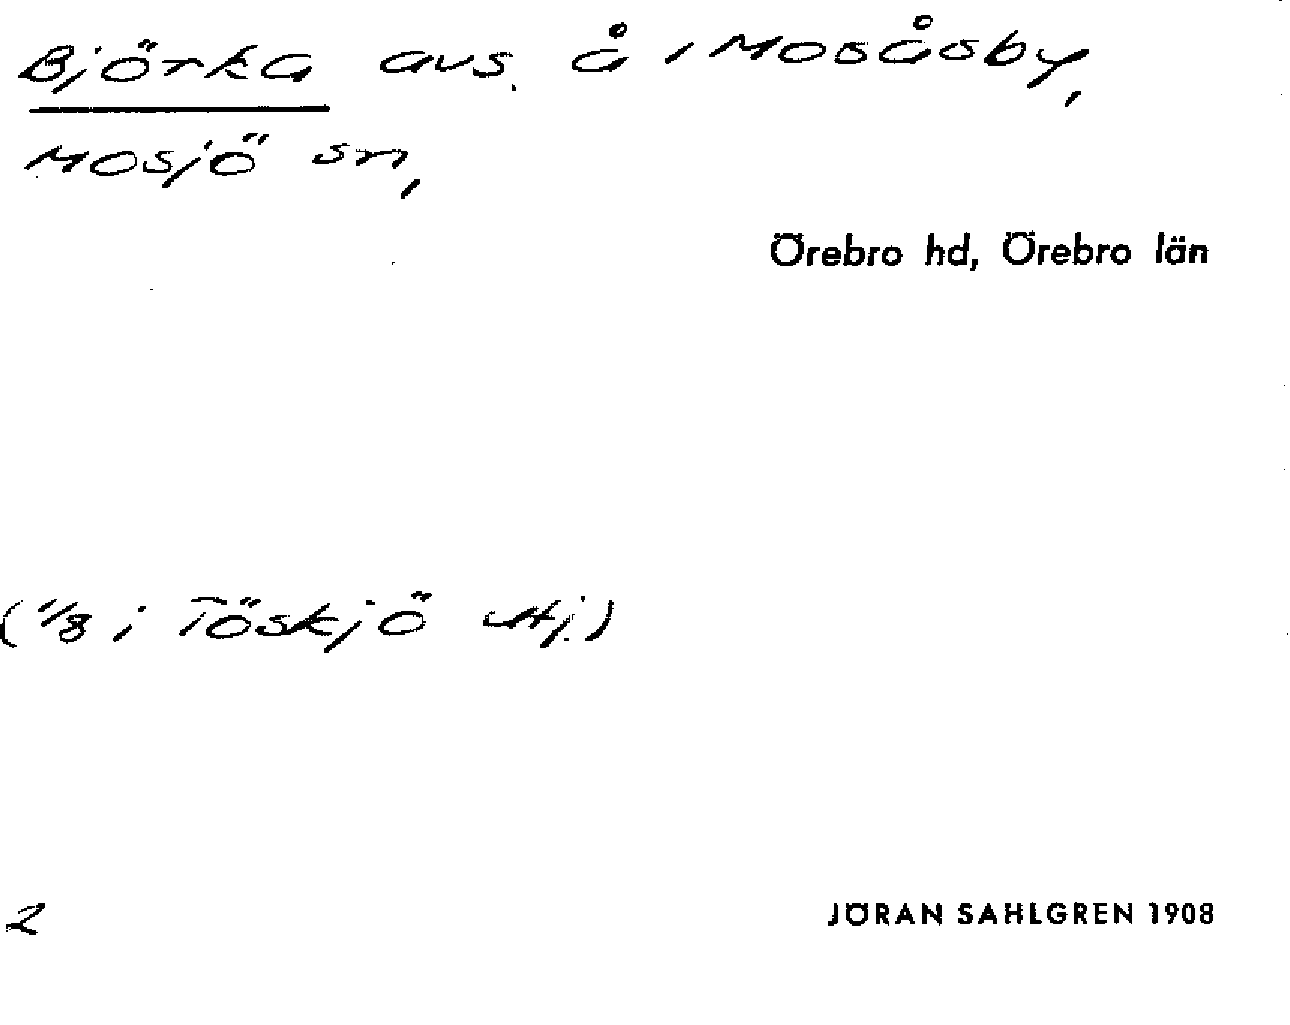 Björka avs. å i Mosåsby,
Mosjö sn,
Örebro hd, Örebro län
(1/8 i Töskjö Hj.)
2
JÖRAN SAHLGREN 1908